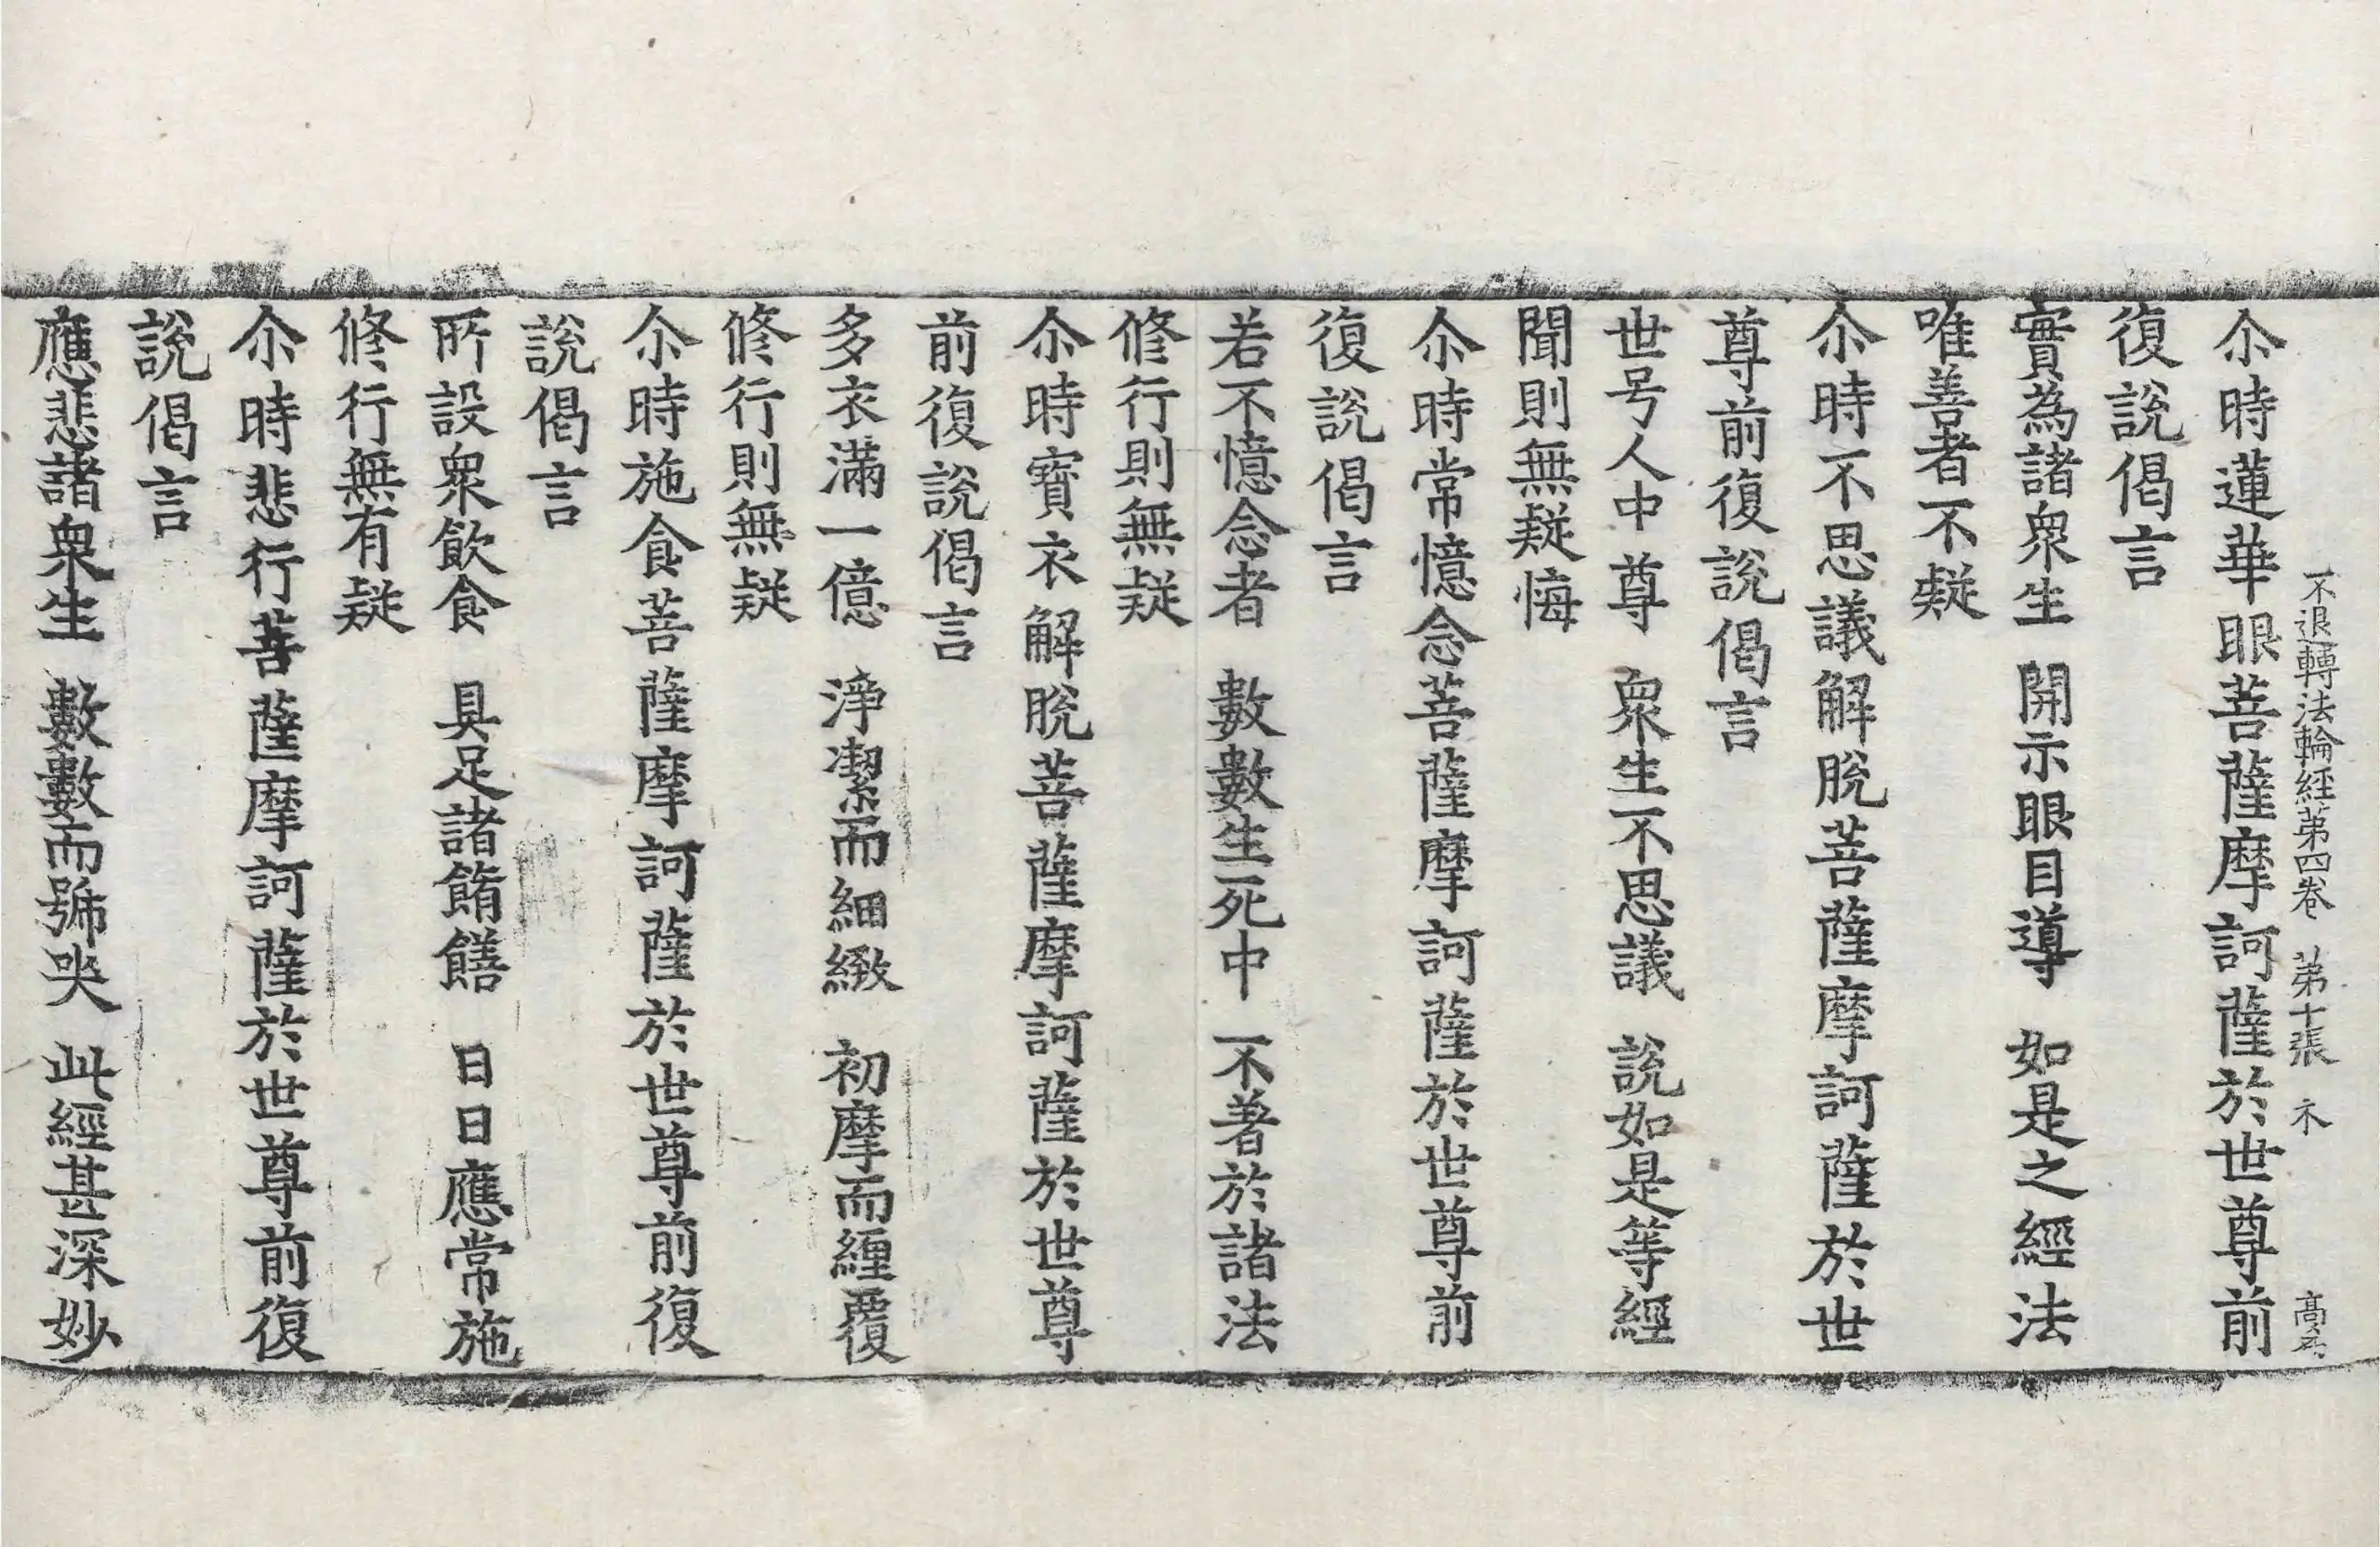 不退轉法輪經苐四卷　苐十張
尒時蓮華眼菩薩摩訶薩於世尊前
復說偈言
實為諸衆生　開示眼目導　如是之經法
唯善者不疑
尒時不思議解脫菩薩摩訶薩於世
尊前復說偈言
世号人中尊　衆生不思議　說如是等經
聞則無疑悔
尒時常憶念菩薩摩訶薩於世尊前
復說偈言
若不憶念者　數數生死中　不著於諸法
修行則無疑
尒時寶衣解脫菩薩摩訶薩於世尊
前復說偈言
多衣滿一億　淨潔而細緻　初摩而纏覆
修行則無疑
尒時施食菩薩摩訶薩於世尊前復
說偈言
所設衆飲食　具足諸餚饍　日日應常施
修行無有疑
尒時悲行菩薩摩訶薩於世尊前復
說偈言
應悲諸衆生　數數而號哭　此經甚深妙